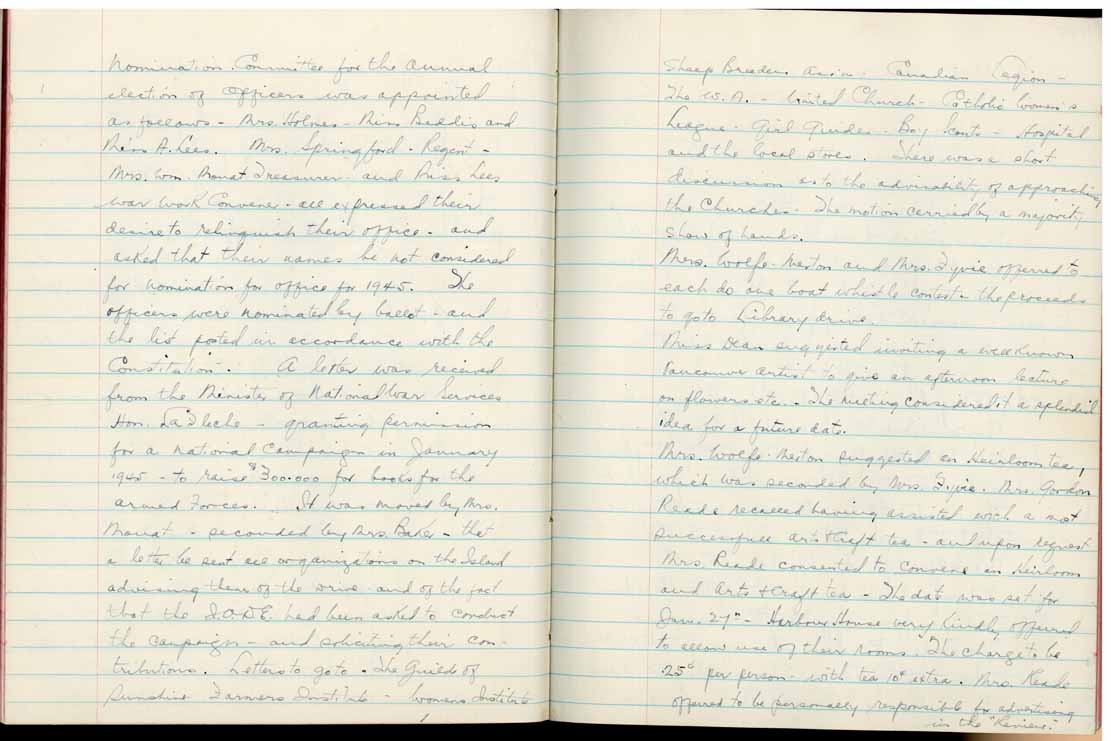 Nomination Committee for the annual
election of officers was appointed
as follows - Mrs. Holmes - Miss Beddis and
Miss A. Lees. Mrs. Springford - Regent -
Mrs. Wm. Mouat Treasurer and Miss Lees
war work Convener - all expressed their
desire to relinquish their office - and
asked that their names be not considered
for nomination for office for 1945. The
officers were nominated by ballot - and
the list posted in accordance with the
Constitution. A letter was received
from the Minister of National War Services
Hon. LaFleche - granting permission
for a national Campaign in January
1945 - to raise $300.000 for books for the
armed Forces. It was moved by Mrs.
Mouat - seconded by Mrs. Baker - that
a letter be sent all organizations on the Island
advising them of the drive - and of the fact
that the I.O.D.E. had been asked to conduct
the campaign - and soliciting their con-
tributions. Letters to go to - The Guild of
Sunshine Farmers Institute - Womens Institute
Sheep Breeders Assn. Canadian Legion -
The W.A. - United Church - Catholic Women's
League - Girl Guides - Boy Scouts - Hospital
and the local stores. There was a short
discussion as to the advisability of approaching
the Churches - The motion carried by a majority
show of hands.
Mrs. Wolfe-Merton and Mrs. Fyvie offered to
each do one boat whistle contest - the proceeds
to go to Library drive.
Miss Dean suggested inviting a well known
Vancouver artist to give an afternoon lecture
on flowers etc. - The meeting considered it a splendid
idea for a future date.
Mrs. Wolfe-Merton suggested an Heirloom tea,
which was seconded by Mrs. Fyvie. Mrs. Gordon
Reade recalled having assisted with a most
successful arts & craft tea - and upon request
Mrs. Reade consented to convene an Heirloom
and Arts & Craft tea - The date was set for
Jan. 27th - Harbour House very kindly offered
to allow use of their rooms. The charge to be
25¢ per person - with tea 10¢ extra. Mrs. Reade
offered to be personally responsible for advertising
in the "Review."